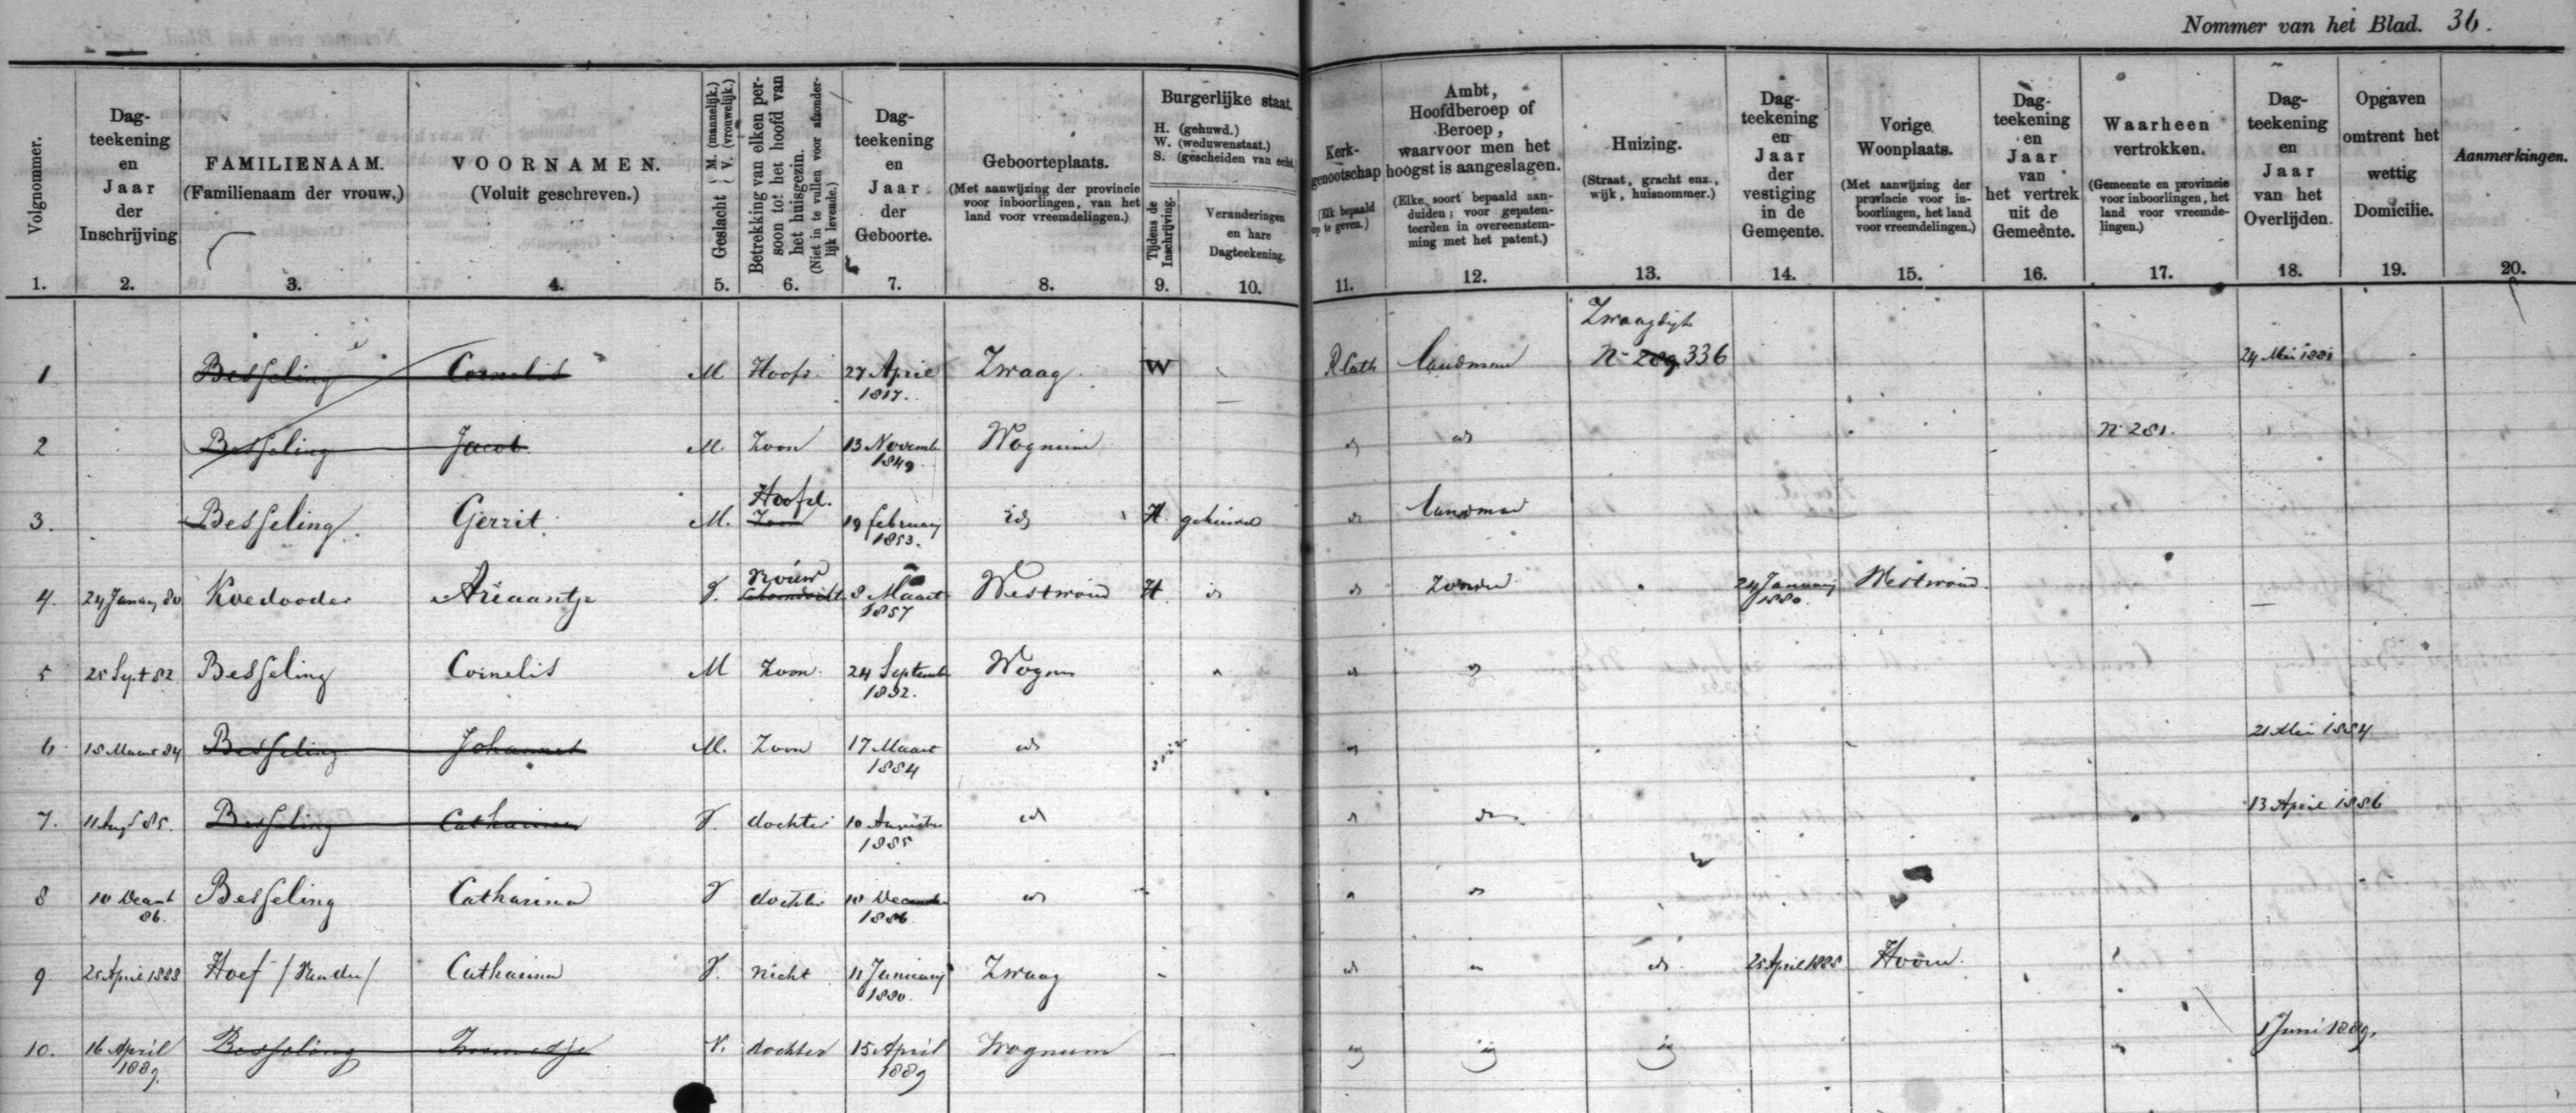 Nommer van het Blad. 36.
Volgnommer.
Dag-
teekening
en
Jaar
der
Inschrijving
FAMILIENAAM.
(Familienaam der vrouw.)
VOORNAMEN.
(Voluit geschreven.)
Geslacht { M. (mannelijk.) V. (vrouwelijk.)
Betrekking van elken per-
soon tot het hoofd van
het huisgezin.
(Niet in te vullen voor afzonder-
lijk levende.)
Dag-
teekening
en
Jaar
der
Geboorte.
Geboorteplaats.
(Met aanwijzing der provincie
voor inboorlingen, van het
land voor vreemdelingen.)
Burgerlijke staat.
H. (gehuwd.)
W. (weduwenstaat.)
S. (gescheiden van echt
Tijdens de
Inschrijving.
Veranderingen
en hare
Dagteekening.
Kerk-
genootschap
(Elk bepaald
op te geven.)
Ambt,
Hoofdberoep of
Beroep,
waarvoor men het
hoogst is aangeslagen.
(Elke soort bepaald aan-
duiden; voor gepaten-
teerden in overeenstem-
ming met het patent.)
Huizing.
(Straat, gracht enz.,
wijk, huisnommer.)
Dag-
teekening
en
Jaar
der
vestiging
in de
Gemeente.
Vorige
Woonplaats.
(Met aanwijzing der
provincie voor in-
boorlingen, het land
voor vreemdelingen.)
Dag-
teekening
en
Jaar
van
het vertrek
uit de
Gemeente.
Waarheen
vertrokken.
(Gemeente en provincie
voor inboorlingen, het
land voor vreemde-
lingen.)
Dag-
teekening
en
Jaar
van het
Overlijden.
Opgaven
omtrent het
wettig
Domicilie.
Aanmerkingen.
1. 2. 3. 4. 5. 6. 7. 8. 9. 10. 11. 12. 13. 14. 15. 16. 17. 18. 19. 20.
Zwaagdijk
1 Besseling Cornelis M Hoofd 27 April Zwaag W R Cath Landman N- 289 336 24 Mei
1817.
2 Besseling Jacob M. Zoon 13 Novemb Wognum id id N 281.
1849.
Hoofd.
3. Besseling Gerrit M. Zoon 19 February id H gehuwd id Landman
1853.
Vrouw
4. 24 January 80 Koedooder Ariaantje V. 8 Maart Westwoud H id id Zonder 24 January Westwoud
1857 1880.
5 25 Sept 82 Besseling Cornelis M Zoon 24 Septemb Wognum
1882.
6 18 Maart 84 Besseling Johannes M. Zoon 17 Maart id 21 Mei 1884
1884
7. 11 Aug 85. Besseling Catharina V. dochter 10 Augustus id id 13 April 1886
1885
8 10 Decemb Besseling Catharina V dochter 10 December id
86. 1886
9 25 April 1888 Hoef / Van der / Catharina V. nicht 11 January Zwaag id id 25 April 1888 Hoorn.
1880.
10. 16 April Besseling V. dochter 15 April Wognum id id id 1 Juni 1889.
1889. 1889